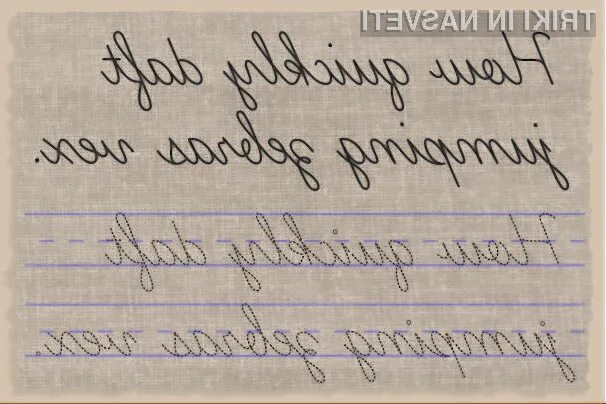 TRIKI IN NASVETI
How quickly daft
jumping zebras vex.
How quickly daft
jumping zebras vex.